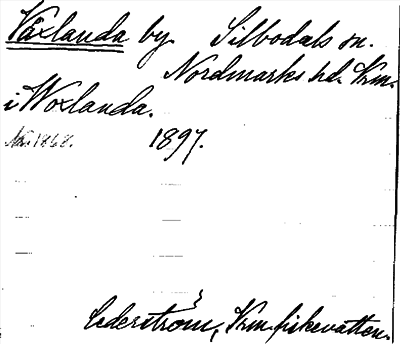 Växlanda by Silbodals sn.
Nordmarks hd. Vrm.
i Woxlanda.
1868. 1897.
Cederström, Vrm. fiskevatten.